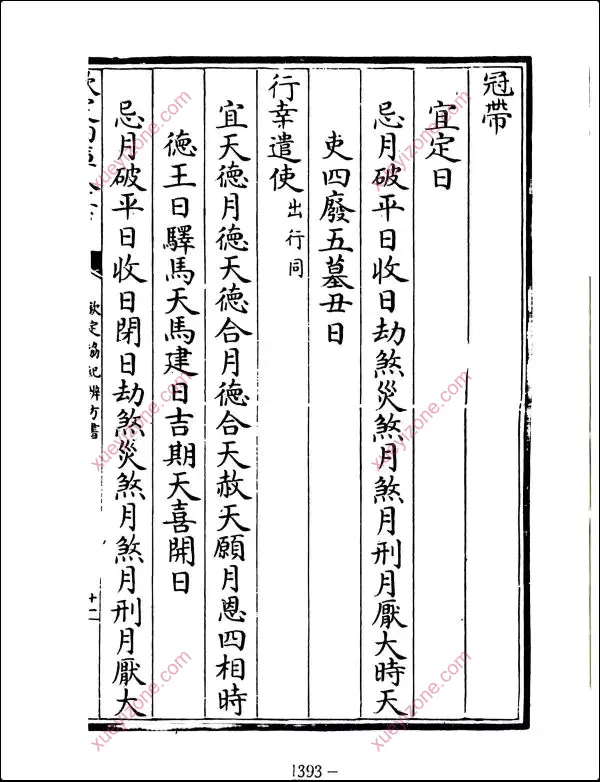 冠帶
宜定日
忌月破平日收日劫煞災煞月煞月刑月厭大時天
吏四廢五墓丑日
行幸遣使出行同
宜天德月德天德合月德合天赦天願月恩四相時
德王日驛馬天馬建日吉期天喜開日
忌月破平日收日閉日劫煞災煞月煞月刑月厭大
欽定協紀辨方書
十二
1393-
xueyizone.com
xueyizone.com
xueyizone.com
xueyizone.com
xueyizone.com
xueyizone.com